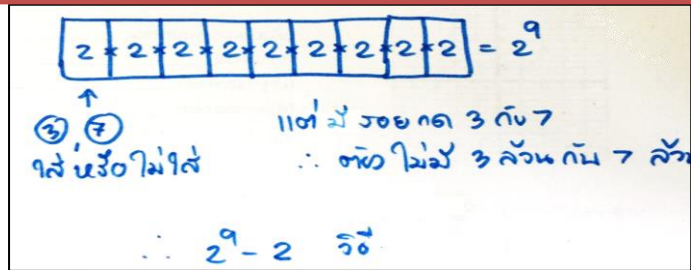 2 × 2 × 2 × 2 × 2 × 2 × 2 × 2 × 2 = 2⁹
↑
③ ⑦ แต่มี รอยกด 3 กับ 7
ใส่ หรือ ไม่ใส่ ∴ ต้องไม่มี 3 ล้วน กับ 7 ล้วน
∴ 2⁹ - 2 วิธี